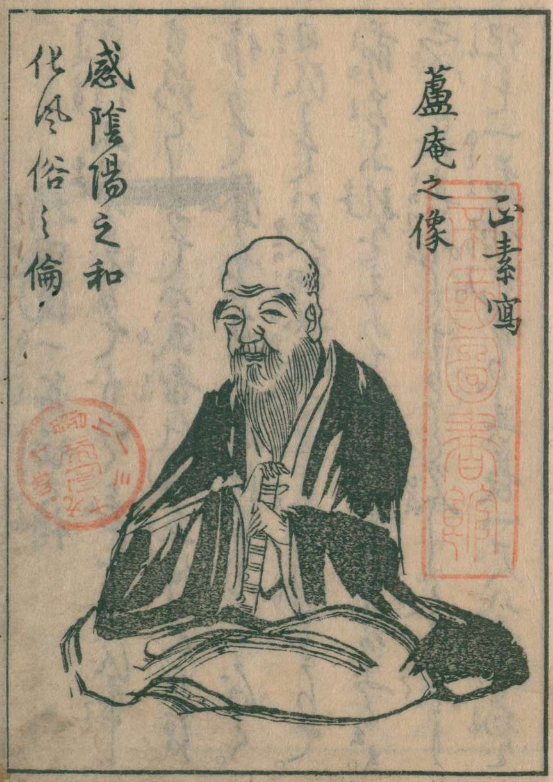 正素寫
蘆庵之像
感陰陽之和
化風俗之倫
帝國圖書館